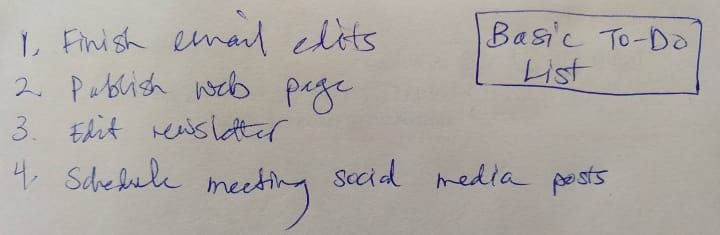 1. Finish email edits
2. Publish web page
3. Edit newsletter
4. Schedule meeting social media posts
Basic To-Do
List